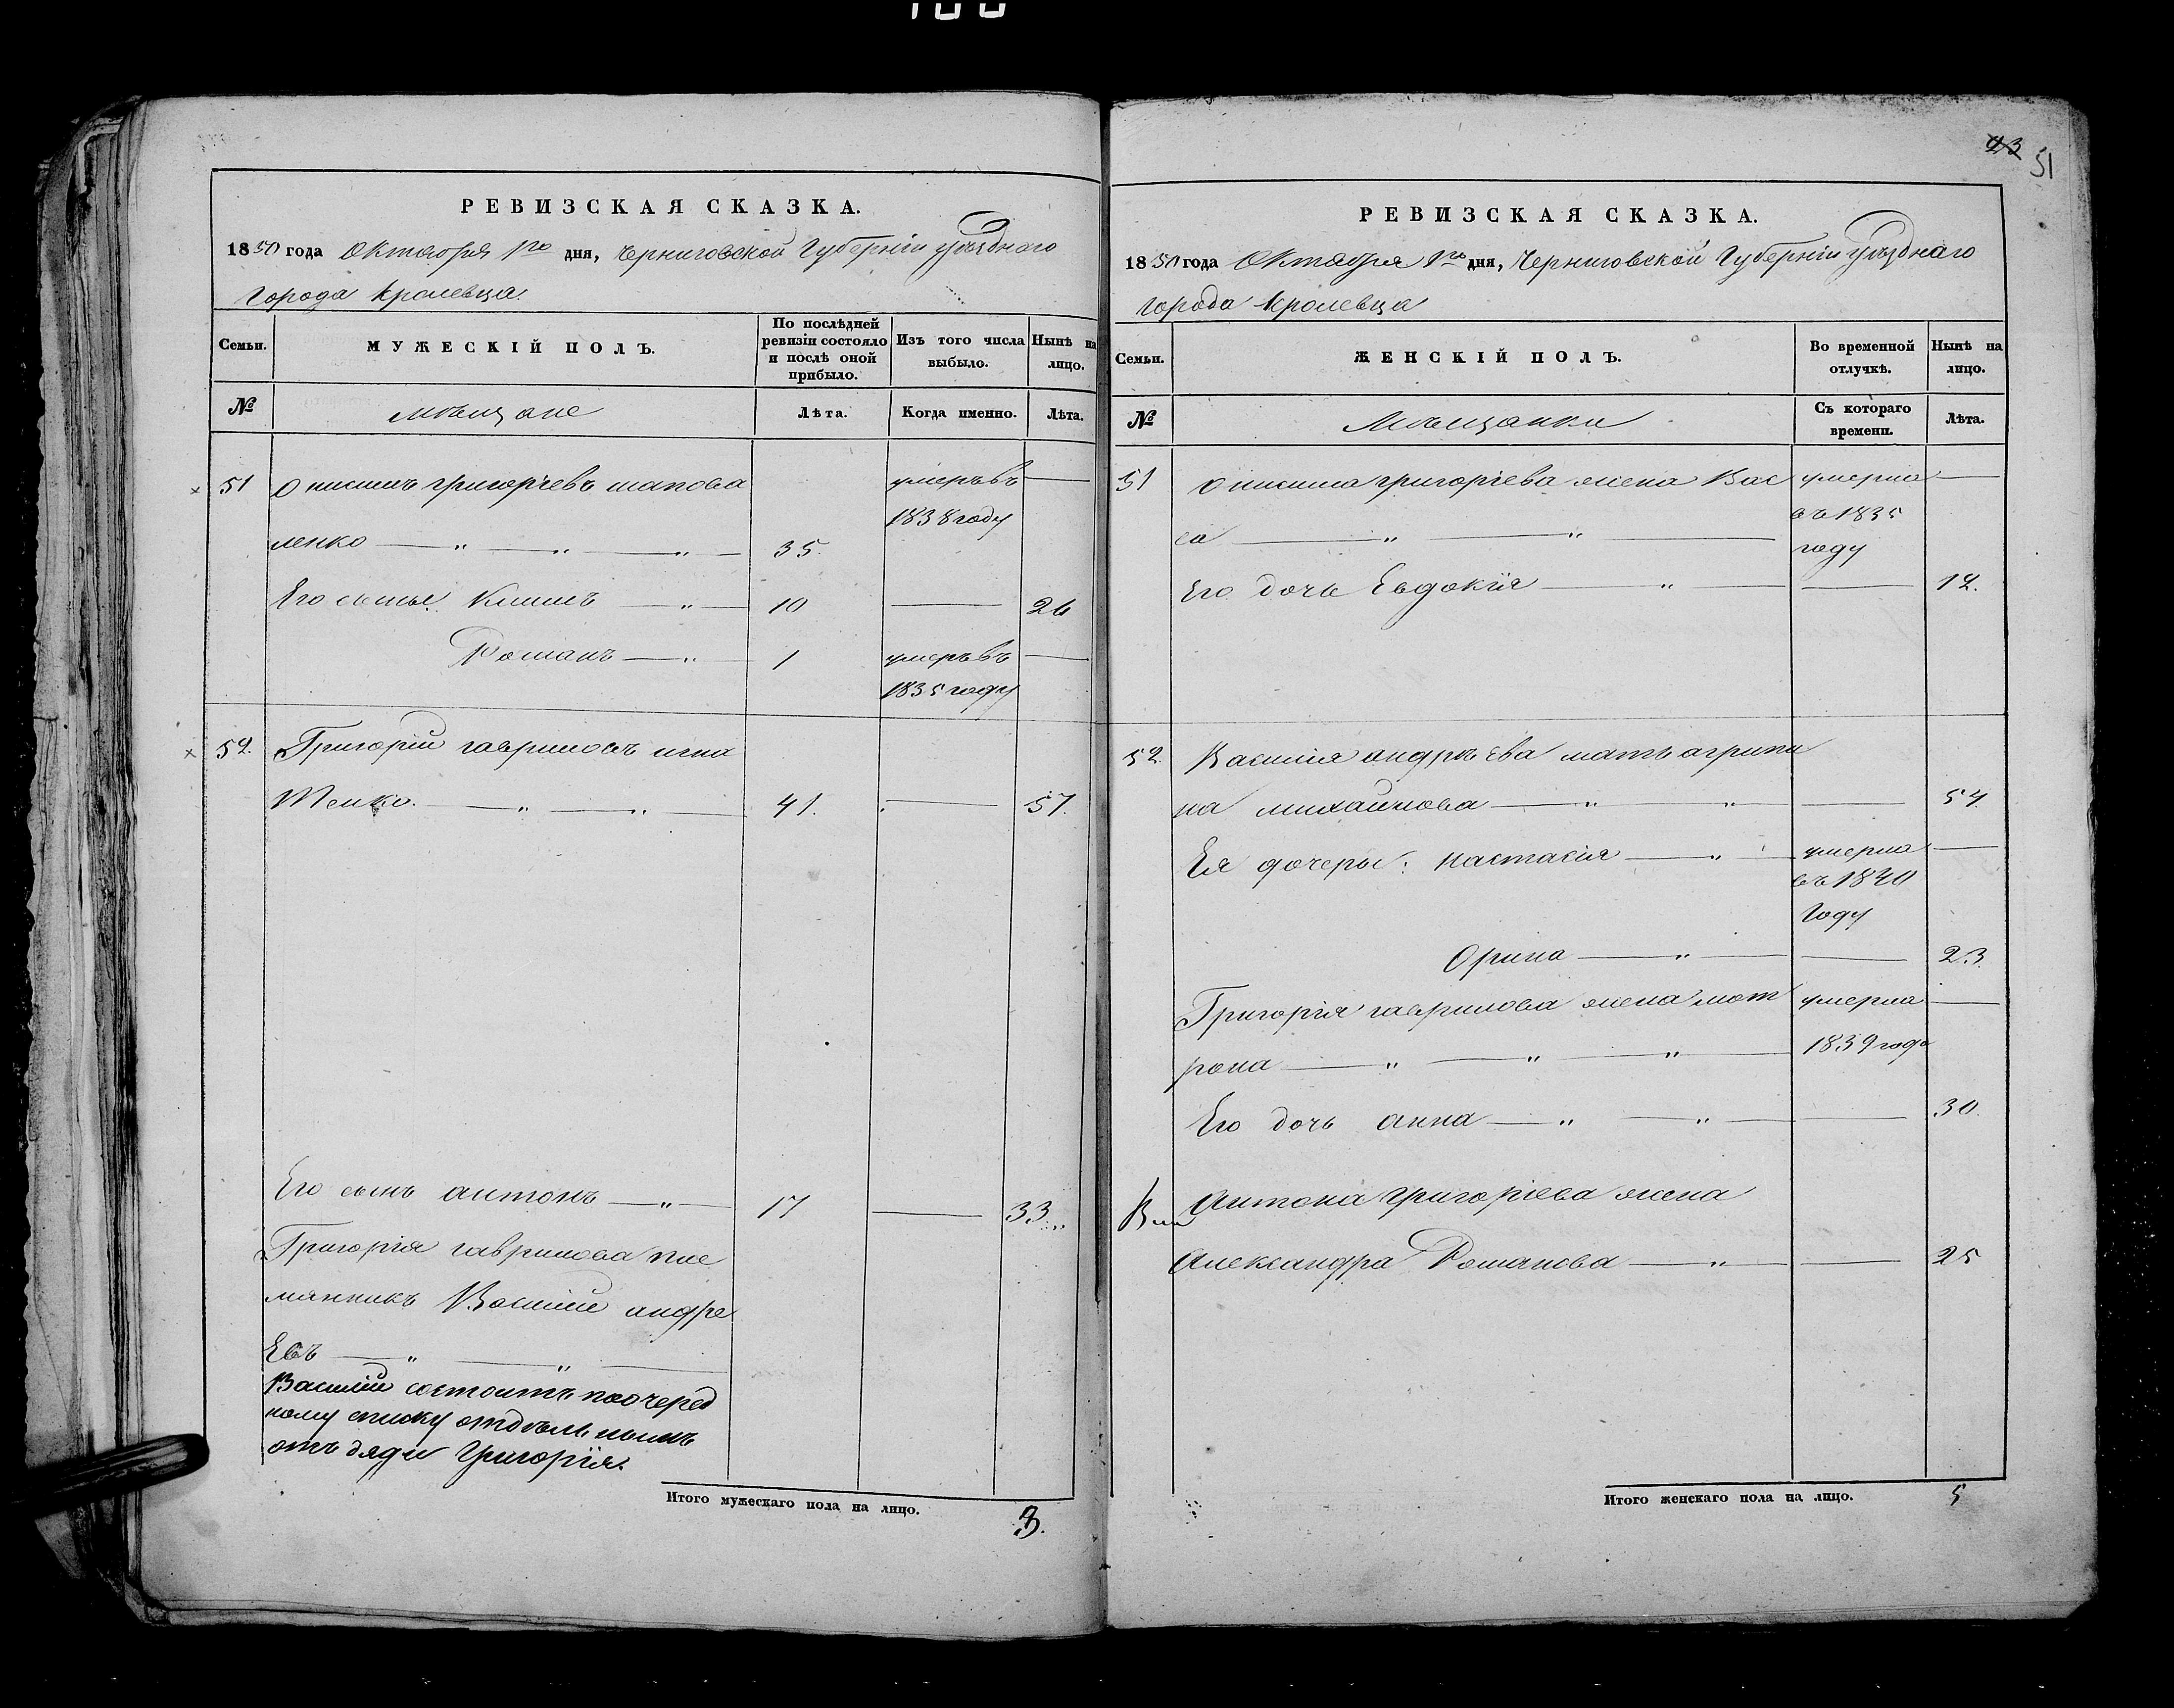 23
51
РЕВИЗСКАЯ СКАЗКА.
1850 года Октября 1го дня, Черниговской Губерніи уѣзднаго
города Кролевца.
Семьи.
МУЖЕСКІЙ ПОЛЪ.
По послѣдней ревизіи состояло и послѣ оной прибыло.
Изъ того числа выбыло.
Нынѣ на лицо.
№
мѣщане
Лѣта.
Когда именно.
Лѣта.
51 Онисимъ григорьевъ шапова умеръ въ —
1838 году
ленко — „ — „ — „ — 35.
Его сынъя: Климъ — „ — 10 — 26
Романъ — „ — 1 умеръ въ —
1835 году
52. Григорій гавриловъ игна
тенко. — „ — „ — 41. — 57.
Его сынъ антонъ — „ — 17 — 33
Григорія гаврилова пле
мянникъ Василій андре
Евъ — „ — „ —
Василій состоитъ по очеред
ному списку отдѣльнымъ
отъ дяди Григорія.
Итого мужескаго пола на лицо. 3.
РЕВИЗСКАЯ СКАЗКА.
1850 года Октября 1го дня, Черниговской Губерніи уѣзднаго
города Кролевца
Семьи.
ЖЕНСКІЙ ПОЛЪ.
Во временной отлучкѣ.
Нынѣ на лицо.
№
Мѣщанки
Съ котораго времени.
Лѣта.
51 Онисима григоріева жена Вас умерла —
са — „ — „ — въ 1835
году
Его дочь Евдокія — „ — — 12.
52. Василія андрѣева мать агрипи
на михайлова — „ — „ — 54
Ея дочеры: настасія — „ — умерла —
въ 1840
году
Орина — „ — — 23.
Григорія гаврилова жена мот умерла —
рона — „ — „ — „ — 1839 года
Его дочь анна — „ — „ — 30.
Антона григоріева жена
Александра Романова — „ — — 25
Итого женскаго пола на лицо. 5